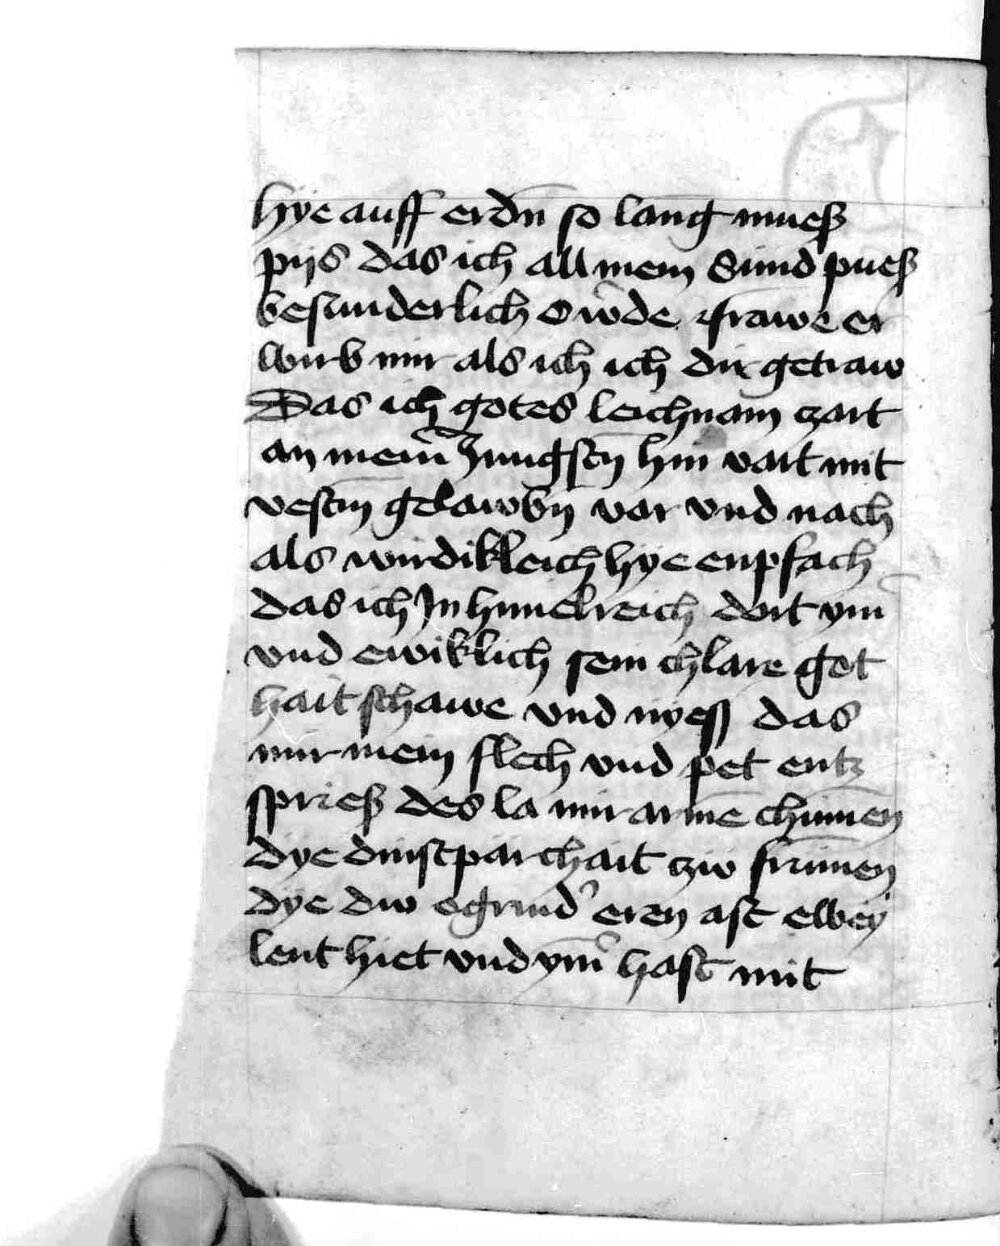 hye auff erdn̄ so lang mueß
pijs das ich all mein Sund pueß
besunderlich O wͤde frawe er
wirb mir als ich ich dir getraw
Das ich gotes leichnam czart
an meinͫ Jungstn̄ hin vart mit
vestn̄ gelawbn̄ var vnd nach
als wirdikleich hye enpfach
das ich In himelreich dort ym̄
vnd ewiklich sein chlare got
hait schawe vnd nyess das
mir mein flech vnd pet entz
sprieß des la mir arme chumen
dye dinstparchait czw frumen
dye dw egrund' eren ast elbey
lent hiet vnd ym̄ hast mit